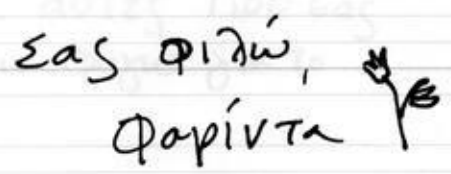 Σας φιλώ,
Φαρίντα